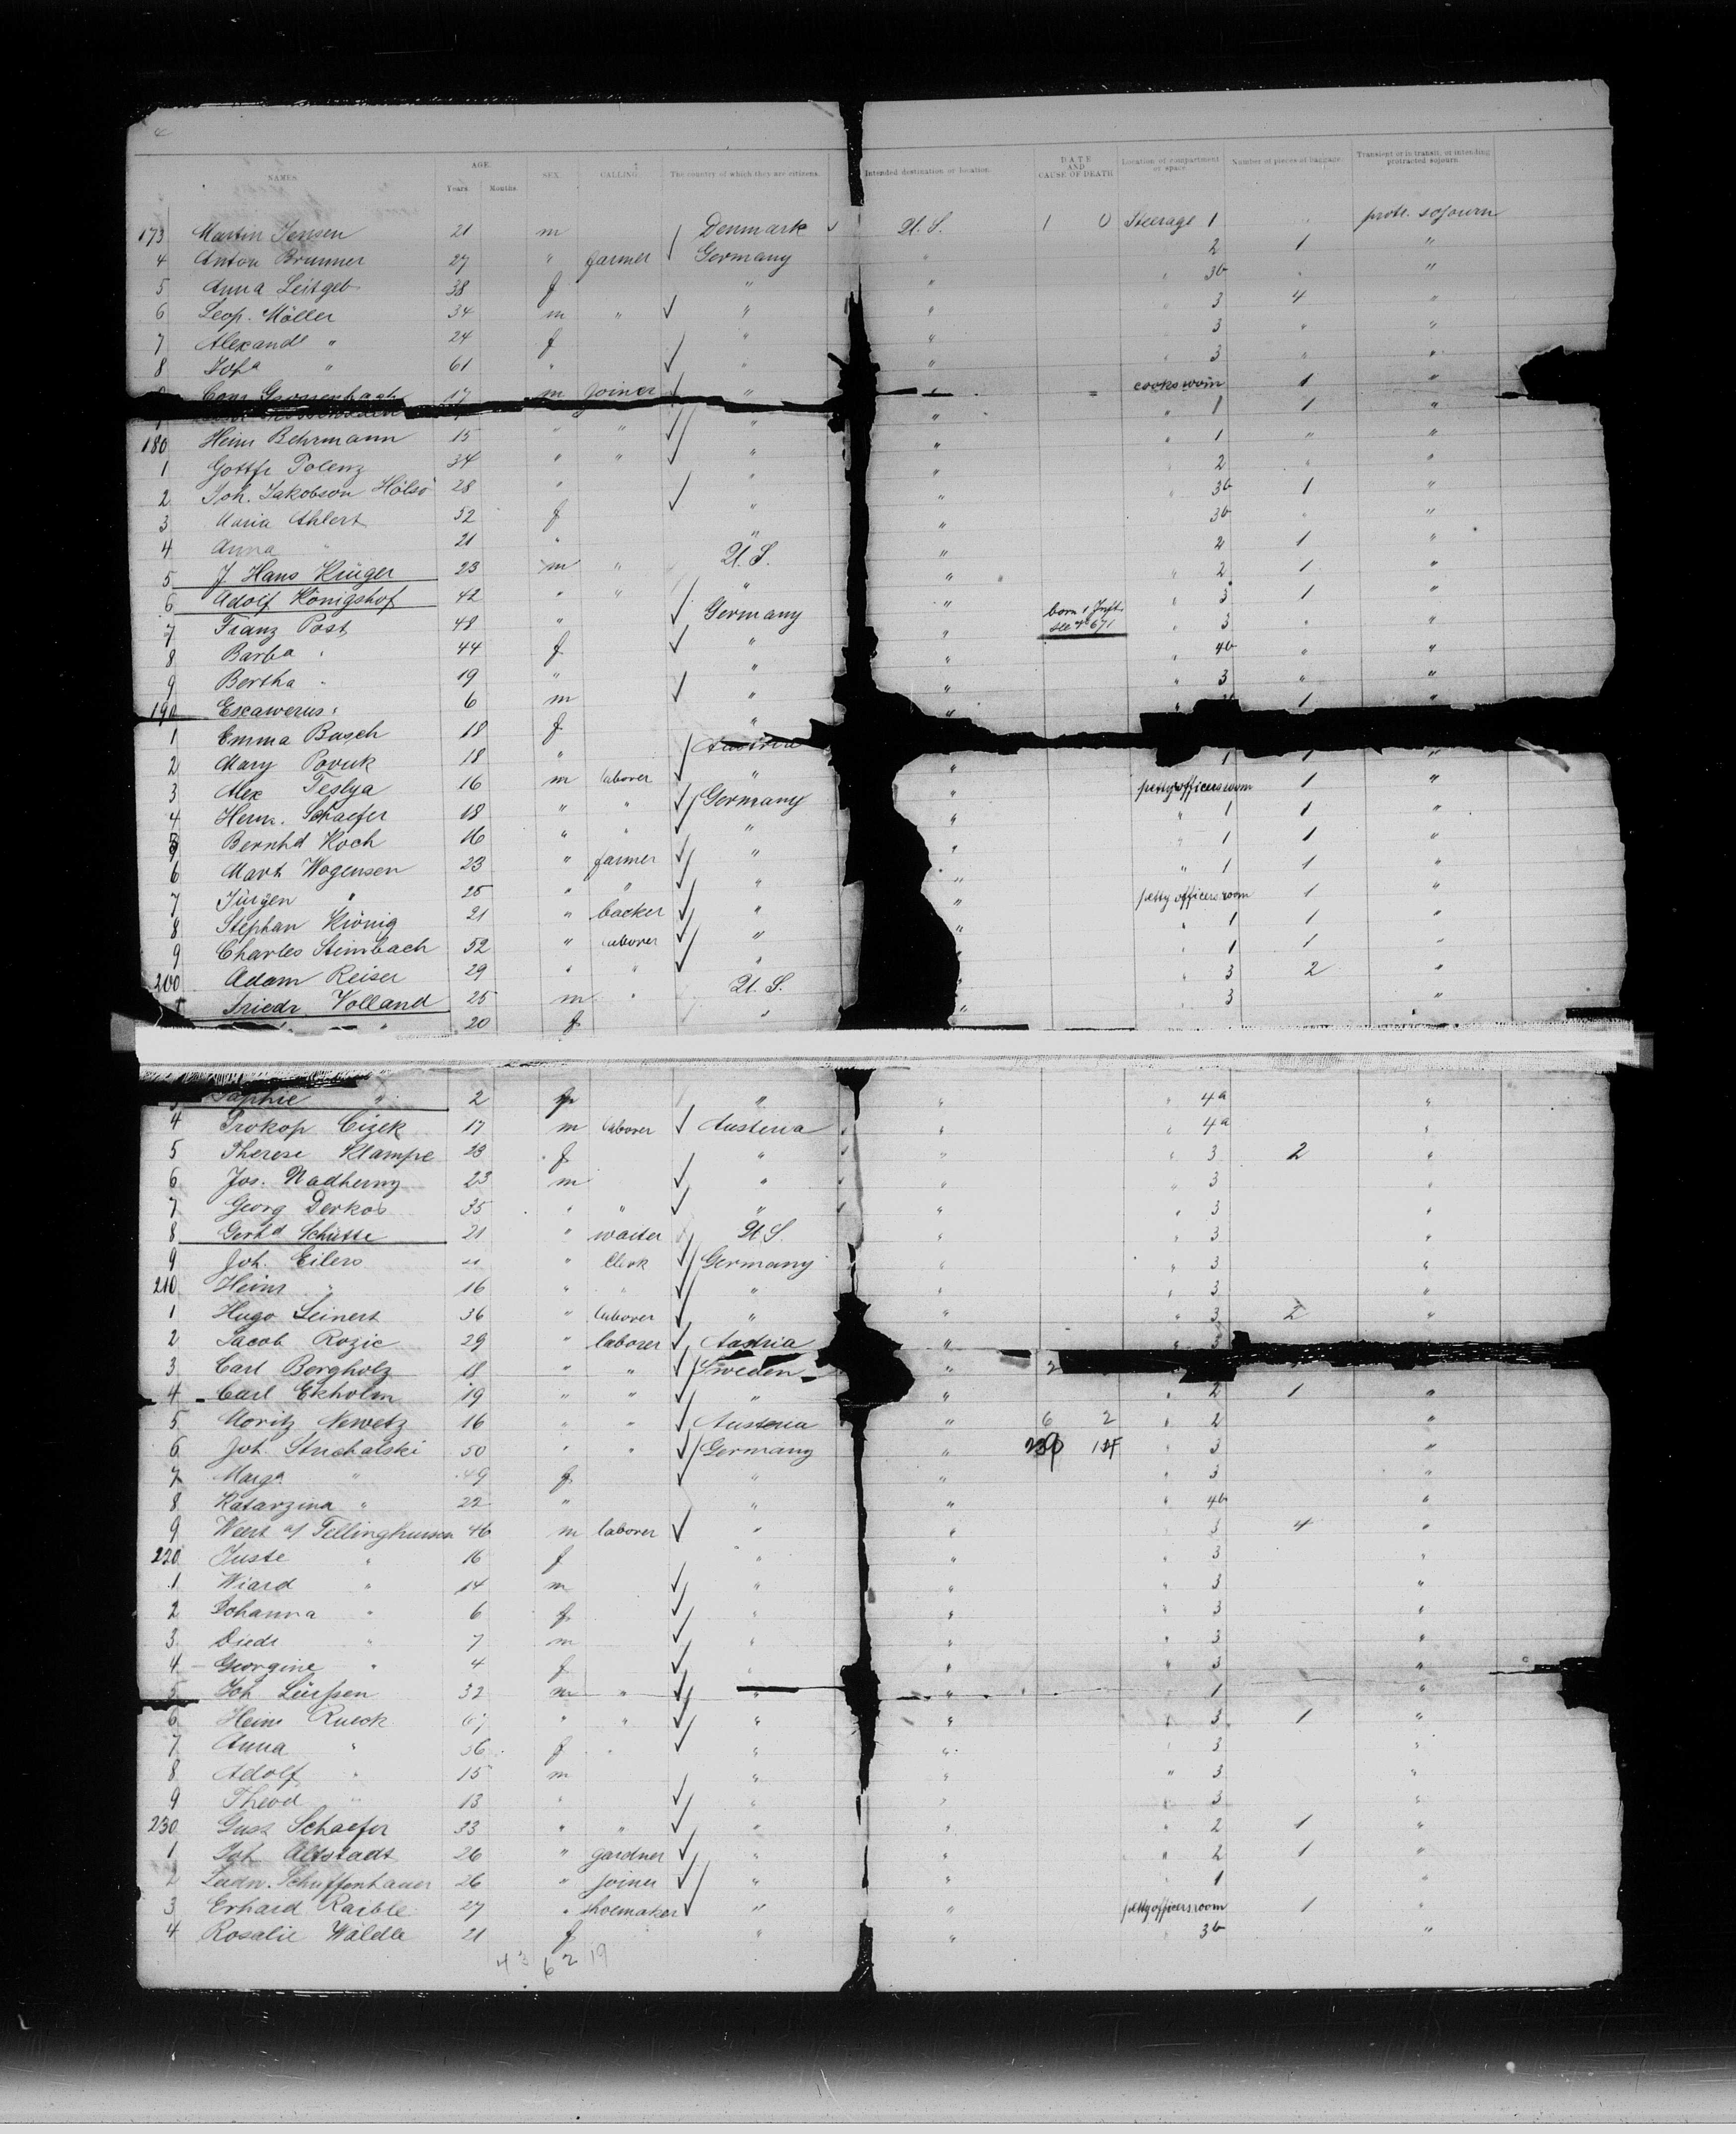 NAMES. AGE. Years. Months. SEX. CALLING. The country of which they are citizens. Intended destination or location. DATE AND CAUSE OF DEATH Location of compartment or space. Number of pieces of baggage. Transient or in transit, or intending protracted sojourn.
173 Martin Jensen 21 m Denmark U.S. 1 0 Steerage 1 protr. sojourn
4 Anton Brunner 27 " farmer Germany " 2 1 "
5 Anna Leitgeb 38 f " " 3b "
6 Leop. Möller 34 m " " " 3 4 "
7 Alexand " 24 f " " 3 " "
8 Joha " 61 " " " 3 " "
Grossenbach 17 m joiner " " cooksroom 1 "
180 Heinr Behrmann 15 " " " " 1 1 "
1 Gottfr Polenz 34 " " " " 1 " "
2 Joh. Jakobson Hölsö 28 " " " 2 "
3 Maria Ahlert 52 f " " 3b 1 "
4 Anna " 21 " " " 3b "
5 J. Hans Krüger 23 m " U.S. " 2 1 "
6 Adolf Königshof 42 " " " " 2 1 "
7 Franz Post 48 " Germany " 3 1 "
8 Barba " 44 f " " born 1 Inft. see No 671 3 "
9 Bertha " 19 " " " 4b " "
190 Escawerus " 6 m " " 3 " "
1 Emma Busch 18 f " " 1 "
2 Mary Povuk 18 " Austria
3 Alex Teslya 16 m laborer " " 1 1 "
4 Herm. Schaefer 18 " " Germany " petty officers room 1 "
5 Bernhd Koch 16 " " " " 1 1 "
6 Mart Wogensen 23 " farmer " " 1 1 "
7 Jürgen " 25 " " " " 1 1 "
8 Stephan König 21 " backer " " petty officers room 1 "
9 Charles Steinbach 52 " laborer " " 1 1 "
200 Adam Reiser 29 " " " " 1 1 "
1 Friedr Volland 25 m " U.S. " 3 2 "
" 20 f " " 3 "
3 Sophie " 2 f " " 4a "
4 Prokop Cizek 17 m laborer Austria " 4a "
5 Therese Klampe 23 f " " 3 2 "
6 Jos. Nadherny 23 m " " 3 "
7 Georg Derkos 35 " " " " 3 "
8 Gerhd Schütte 21 " waiter U.S. " 3 "
9 Joh. Eilers " clerk Germany " 3 "
210 Heinr " 16 " " " " 3 "
1 Hugo Leinert 36 " laborer " " 3 2 "
2 Jacob Rozic 29 " laborer Austria " 3
3 Carl Bergholz 18 " " Sweden " 2
4 Carl Ekholm 19 " " " " 2 1 "
5 Moritz Newetz 16 " " Austria " 6 2 " 2 "
6 Joh. Struchalski 50 " " Germany " 3 "
7 Marga " 49 f " " 3 "
8 Katarzina " 22 " " " 4b "
9 Weert Tellinghusen 46 m laborer " " 3 4 "
220 Juste " 16 f " " 3 "
1 Wiard " 14 m " " 3 "
2 Johanna " 6 f " " 3 "
3 Diedr " 7 m " " 3 "
4 Georgine " 4 f " " 3 "
5 Joh Lürssen 32 m " " " 1 "
6 Heinr Rueck " " " " 3 1 "
7 Anna " 36 f " " 3 "
8 Adolf " 15 m " " " 3 "
9 Theod " 13 " " " 3 "
230 Gust Schaefer 33 " " " " 2 1 "
1 Joh Altstadt 26 " gardner " " 2 1 "
2 Ludw. Schuffenhauer 26 " joiner " 1 "
3 Erhard Raible 27 " shoemaker " " petty officers room 1 "
4 Rosalie Wäldle 21 f " " 3b "
43 62 19